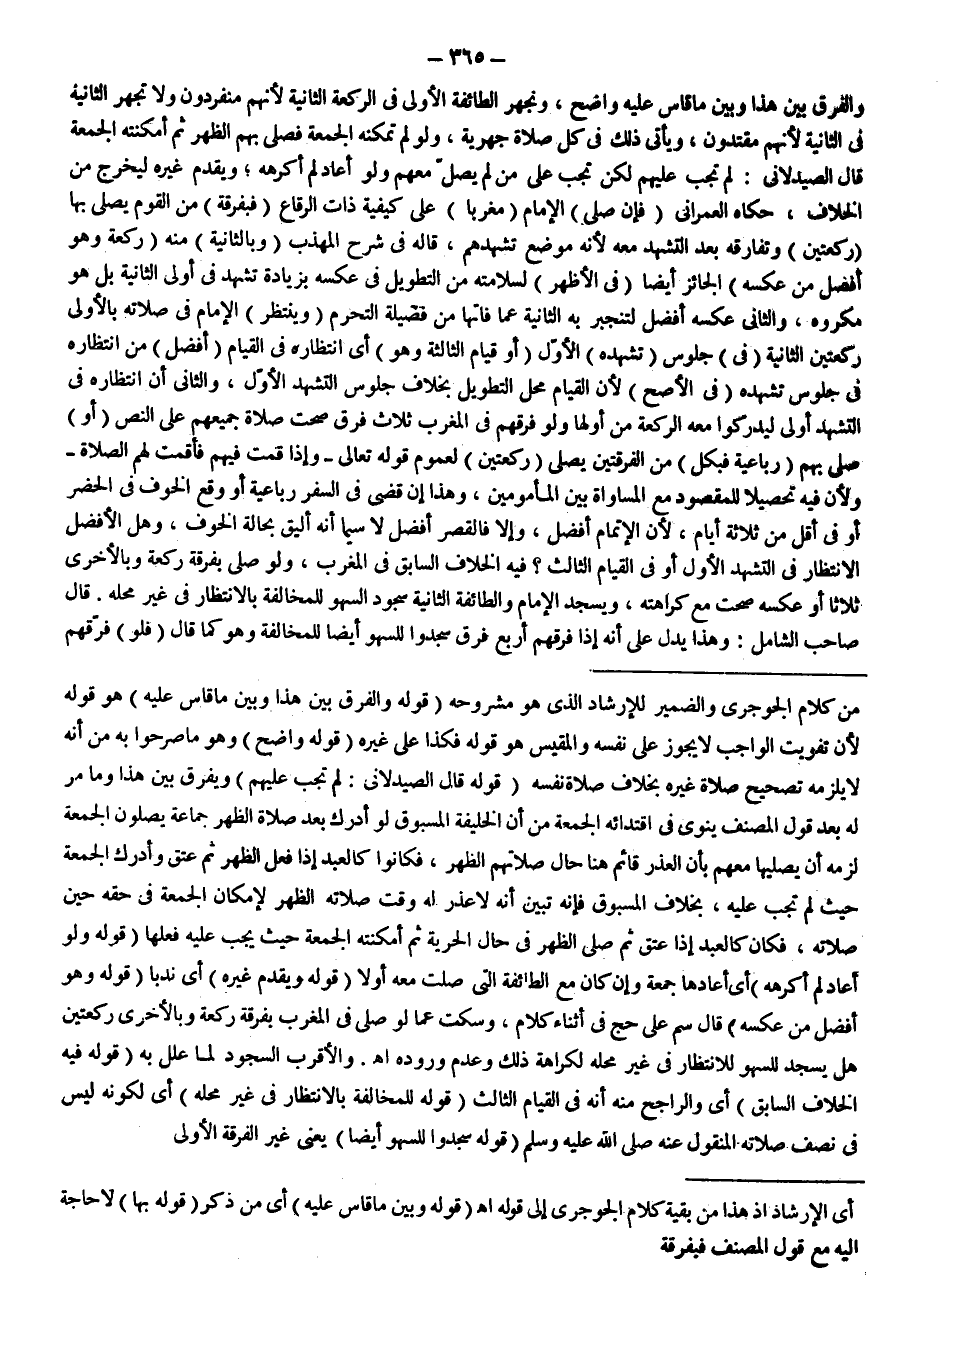 – ٣٦٥ –
والفرق بين هذا وبين ماقاس عليه واضح ، وتجهر الطائفة الأولى فى الركعة الثانية لأنهم منفردون ولا تجهر الثانية
فى الثانية لأنهم مقتدون ، ويأتى ذلك فى كل صلاة جهرية ، ولو لم تمكنه الجمعة فصلى بهم الظهر ثم أمكنته الجمعة
قال الصيدلانى : لم تجب عليهم لكن تجب على من لم يصلّ معهم ولو أعاد لم أكرهه ؛ ويقدم غيره ليخرج من
الخلاف ، حكاه العمرانى ( فإن صلى ) الإمام ( مغربا ) على كيفية ذات الرقاع ( فبفرقة ) من القوم يصلى بها
(ركعتين ) وتفارقه بعد التشهد معه لأنه موضع تشهدهم ، قاله فى شرح المهذب ( وبالثانية ) منه ( ركعة وهو
أفضل من عكسه ) الجائز أيضا ( فى الأظهر ) لسلامته من التطويل فى عكسه بزيادة تشهد فى أولى الثانية بل هو
مكروه ، والثانى عكسه أفضل لتنجبر به الثانية عما فاتها من فضيلة التحرم ( وينتظر ) الإمام فى صلاته بالأولى
ركعتين الثانية ( فى ) جلوس ( تشهده ) الأوّل ( أو قيام الثالثة وهو ) أى انتظاره فى القيام ( أفضل ) من انتظاره
فى جلوس تشهده ( فى الأصح ) لأن القيام محل التطويل بخلاف جلوس التشهد الأوّل ، والثانى أن انتظاره فى
التشهد أولى ليدركوا معه الركعة من أولها ولو فرقهم فى المغرب ثلاث فرق صحت صلاة جميعهم على النص ( أو )
صلى بهم ( رباعية فبكل ) من الفرقتين يصلى ( ركعتين ) لعموم قوله تعالى ـ وإذا قمت فيهم فأقمت لهم الصلاة ـ
ولأن فيه تحصيلا للمقصود مع المساواة بين المأمومين ، وهذا إن قضى فى السفر رباعية أو وقع الخوف فى الحضر
أو فى أقل من ثلاثة أيام ، لأن الإتمام أفضل ، وإلا فالقصر أفضل لا سيما أنه أليق بحالة الخوف ، وهل الأفضل
الانتظار فى التشهد الأول أو فى القيام الثالث ؟ فيه الخلاف السابق فى المغرب ، ولو صلى بفرقة ركعة وبالأخرى
ثلاثا أو عكسه صحت مع كراهته ، ويسجد الإمام والطائفة الثانية سجود السهو للمخالفة بالانتظار فى غير محله . قال
صاحب الشامل : وهذا يدل على أنه إذا فرقهم أربع فرق سجدوا للسهو أيضا للمخالفة وهو كما قال ( فلو ) فرّقهم
من كلام الجوجرى والضمير للإرشاد الذى هو مشروحه ( قوله والفرق بين هذا وبين ماقاس عليه ) هو قوله
لأن تفويت الواجب لايجوز على نفسه والمقيس هو قوله فكذا على غيره ( قوله واضح ) وهو ماصرحوا به من أنه
لايلزمه تصحيح صلاة غيره بخلاف صلاة نفسه ( قوله قال الصيدلانى : لم تجب عليهم ) ويفرق بين هذا وما مر
له بعد قول المصنف ينوى فى اقتدائه الجمعة من أن الخليفة المسبوق لو أدرك بعد صلاة الظهر جماعة يصلون الجمعة
لزمه أن يصليها معهم بأن العذر قائم هنا حال صلاتهم الظهر ، فكانوا كالعبد إذا فعل الظهر ثم عتق وأدرك الجمعة
حيث لم تجب عليه ، بخلاف المسبوق فإنه تبين أنه لاعذر له وقت صلاته الظهر لإمكان الجمعة فى حقه حين
صلاته ، فكان كالعبد إذا عتق ثم صلى الظهر فى حال الحرية ثم أمكنته الجمعة حيث يجب عليه فعلها ( قوله ولو
أعاد لم أكرهه ) أى أعادها جمعة وإن كان مع الطائفة التى صلت معه أولا ( قوله ويقدم غيره ) أى ندبا ( قوله وهو
أفضل من عكسه ) قال سم على حج فى أثناء كلام ، وسكت عما لو صلى فى المغرب بفرقة ركعة وبالأخرى ركعتين
هل يسجد للسهو للانتظار فى غير محله لكراهة ذلك وعدم وروده اهـ . والأقرب السجود لما علل به ( قوله فيه
الخلاف السابق ) أى والراجح منه أنه فى القيام الثالث ( قوله للمخالفة بالانتظار فى غير محله ) أى لكونه ليس
فى نصف صلاته المنقول عنه صلى الله عليه وسلم ( قوله سجدوا للسهو أيضا ) يعنى غير الفرقة الأولى
أى الإرشاد اذ هذا من بقية كلام الجوجرى إلى قوله اهـ ( قوله وبين ماقاس عليه ) أى من ذكر ( قوله بها ) لاحاجة
اليه مع قول المصنف فبفرقة